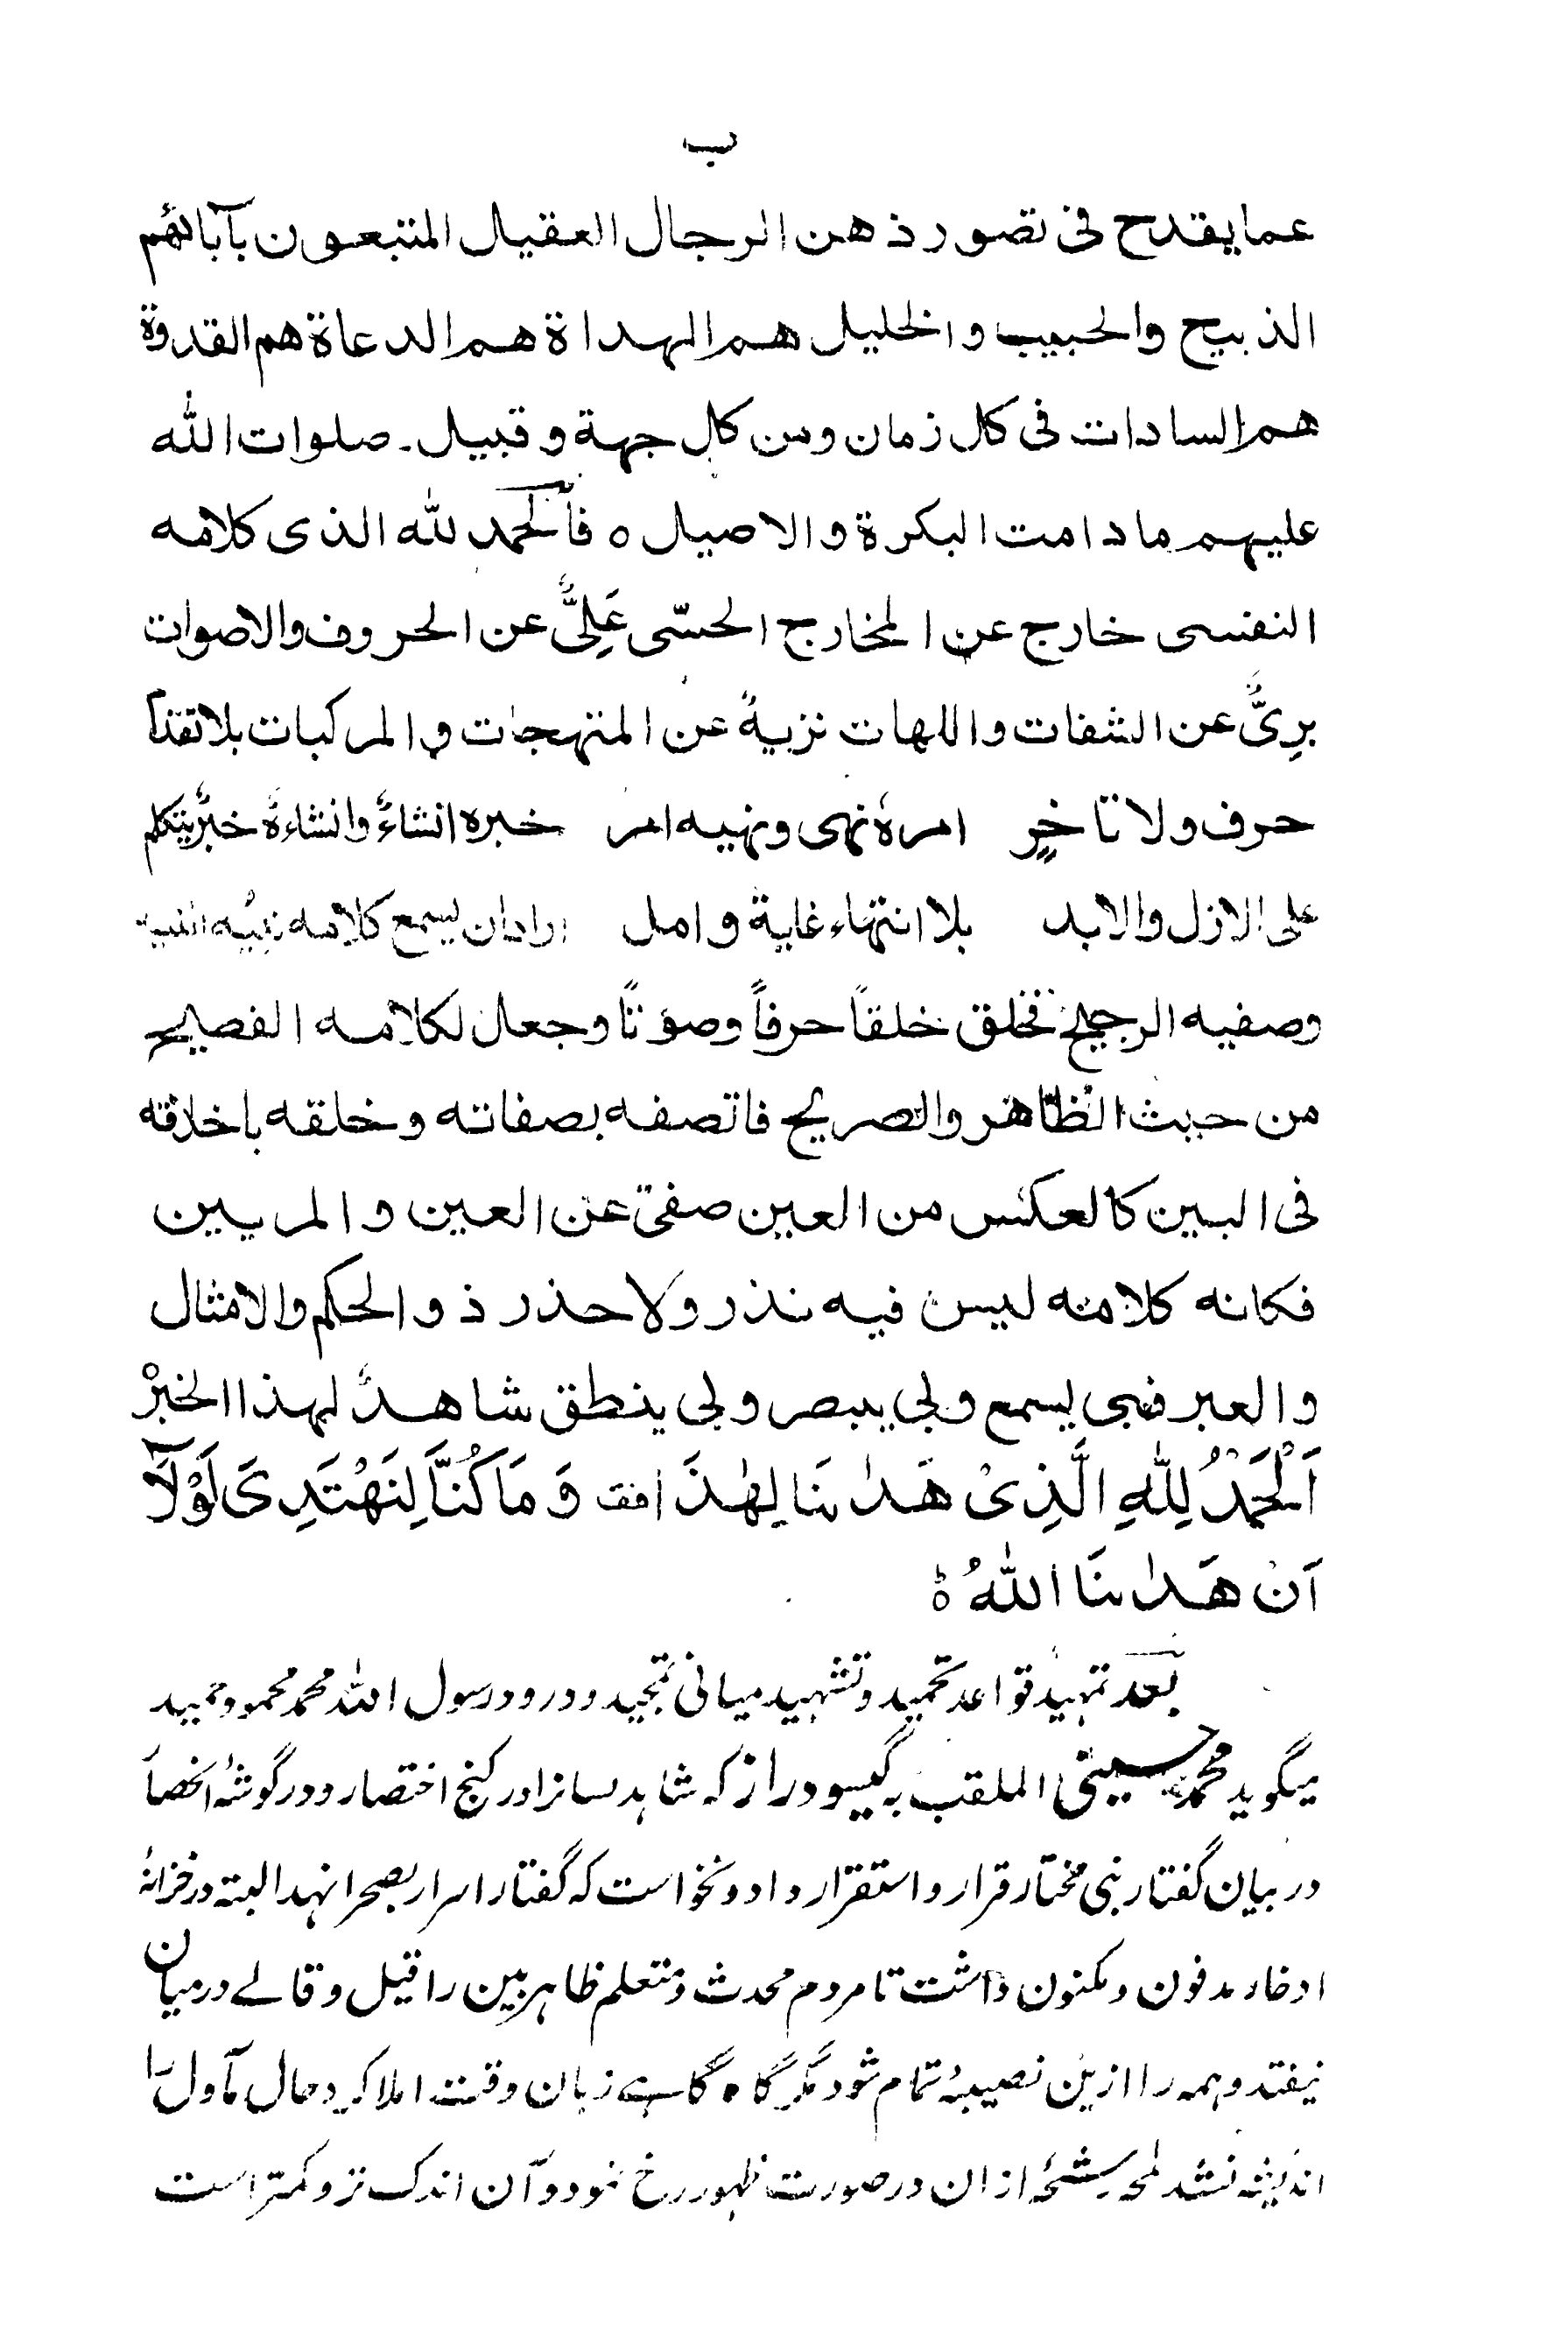 ب
عما یقدح فی تصور ذهن الرجال العقیل المتبعون بآبائهم
الذبیح والحبیب والخلیل هم الهداة هم الدعاة هم القدوة
هم السادات فی کل زمان ومن کل جهة و قبیل۔ صلوات الله
علیهم ما دامت البکرة والاصیل ه فآلحمد لله الذی کلامه
النفسی خارج عن المخارج الحسّی عَلِیٌّ عن الحروف والاصوات
برِیٌّ عن الشفات واللهات نزیهٌ عن المتهجات والمرکبات بلا تقذا
حرف ولا تاخیرٍ امرهٗ نهی ونهیه امر خبره انشاءٌ وانشاءهٗ خبرٌ یتکلم
علی الازل والابد بلا انتهاء غایة وامل اراد ان یسمع کلامه نبیّه
وصفیه الرجیح فخلق خلقاً حرفاً وصوتاً وجعل لکلامه الفصیح
من حیث الظّاهر والصریح فاتصفه بصفاته وخلقه باخلاقه
فی البین کالعکس من العین صفیٓ عن العین والمریین
فکانه کلامه لیس فیه نذر ولا حذر ذو الحکم والامثال
والعبر فبی یسمع وبی یبصر وبی ینطق شاهدٌ لهذا الخبرْ
اَلْحَمْدُ لِلّٰهِ الَّذِیْ هَدٰىنَا لِهٰذَا فقف وَ مَا کُنَّا لِنَهْتَدِیَ لَوْلَآ
اَنْ هَدٰىنَا اللّٰهُ ه
بعد تمهید قواعد تحمید و تشهید مبانی تمجید و درود رسول الله محمد محمود حمید
میگوید محمد حسینی الملقب به گیسو دراز که شاهد لسانرا در کنج اختصار و در گوشهٔ انحصا
در بیان گفتار نبی مختار قرار و استقرار داد و نخواست که گفتار اسرار بصحرا نهد البته در خزانهٔ
ادخار مدفون و مکنون داشت تا مردم محدث و متعلم ظاهر بین را قیل و قالے درمیان
نیفتد و همه را ازین نصیبهٔ تمام شود مگر گاه گاہے زبان وقت املا کرد و حال مآول را
اندیشه نشد لمحه رشحهٔ ازان در صورت ظهور رخ نمود و آن اندک تر و کمتر است